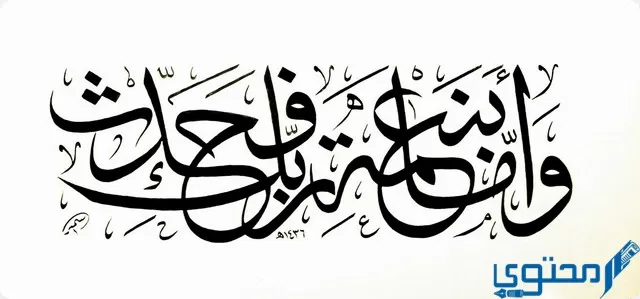 وَأَمَّا بِنِعْمَةِ رَبِّكَ فَحَدِّثْ
١٤٣٦هـ
محتوى